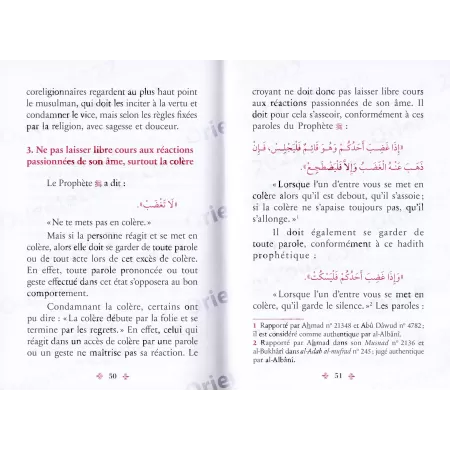 coreligionnaires regardent au plus haut point
le musulman, qui doit les inciter à la vertu et
condamner le vice, mais selon les règles fixées
par la religion, avec sagesse et douceur.
3. Ne pas laisser libre cours aux réactions
passionnées de son âme, surtout la colère
Le Prophète ﷺ a dit :
«لَا تَغْضَبْ».
« Ne te mets pas en colère. »
Mais si la personne réagit et se met en
colère, alors elle doit se garder de toute parole
ou de tout acte lors de cet excès de colère.
En effet, toute parole prononcée ou tout
geste effectué dans cet état s'opposera au bon
comportement.
Condamnant la colère, certains ont
pu dire : « La colère débute par la folie et se
termine par les regrets. » En effet, celui qui
réagit dans un accès de colère par une parole
ou un geste ne maîtrise pas sa réaction. Le
50
croyant ne doit donc pas laisser libre cours
aux réactions passionnées de son âme. Il
doit pour cela s'asseoir, conformément à ces
paroles du Prophète ﷺ :
«إِذَا غَضِبَ أَحَدُكُمْ وَهُوَ قَائِمٌ فَلْيَجْلِسْ، فَإِنْ
ذَهَبَ عَنْهُ الْغَضَبُ وَإِلَّا فَلْيَضْطَجِعْ».
« Lorsque l'un d'entre vous se met en
colère alors qu'il est debout, qu'il s'assoie ;
si la colère ne s'apaise toujours pas, qu'il
s'allonge. »1
Il doit également se garder de
toute parole, conformément à ce hadith
prophétique :
«وَإِذَا غَضِبَ أَحَدُكُمْ فَلْيَسْكُتْ».
« Lorsque l'un d'entre vous se met en
colère, qu'il garde le silence. »2 Les paroles :
1 Rapporté par Aḥmad n° 21348 et Abû Dâwud n° 4782 ;
il est considéré comme authentique par al-Albânî.
2 Rapporté par Aḥmad dans son Musnad n° 2136 et
al-Bukhârî dans al-Adab al-mufrad n° 245 ; jugé authentique
par al-Albânî.
51